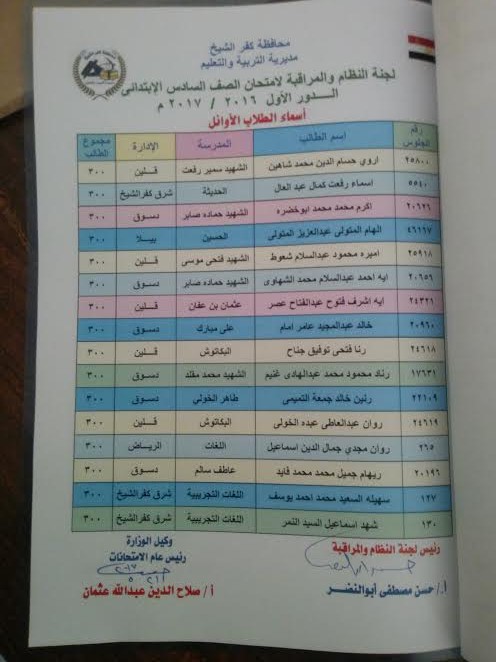 محافظة كفر الشيخ
مديرية التربية والتعليم
لجنة النظام والمراقبة لامتحان الصف السادس الإبتدائى
الـــدور الأول ٢٠١٦ / ٢٠١٧ م
أسماء الطلاب الأوائل
رقم الجلوس اسم الطالب المدرسة الإدارة مجموع الطالب
٢٥٨٠٠ اروي حسام الدين محمد شاهين الشهيد سمير رفعت قلين ٣٠٠
٥٥٤٠ اسماء رفعت كمال عبد العال الحديثة شرق كفرالشيخ ٣٠٠
٢٠٦٢٦ اكرم محمد محمد ابوخضره الشهيد حماده صابر دسوق ٣٠٠
٤٦١٦٧ الهام المتولى عبدالعزيز المتولى الحسين بيلا ٣٠٠
٢٥٩١٨ اميره محمود عبدالسلام شعوط الشهيد فتحى موسى قلين ٣٠٠
٢٠٦٥٦ ايه احمد عبدالسلام محمد الشهاوى الشهيد حماده صابر دسوق ٣٠٠
٢٤٣٢١ ايه اشرف فتوح عبدالفتاح عصر عثمان بن عفان قلين ٣٠٠
٢٠٩٦٠ خالد عبدالمجيد عامر امام على مبارك دسوق ٣٠٠
٢٤٦١٨ رنا فتحى توفيق جناح البكاتوش قلين ٣٠٠
١٧٦٣١ رناد محمود محمد عبدالهادى غنيم الشهيد محمد مقلد دسوق ٣٠٠
٢٢١٠٩ رنين خالد جمعة التميمى طاهر الخولي دسوق ٣٠٠
٢٤٦١٩ روان عبدالعاطى عبده الخولى البكاتوش قلين ٣٠٠
٢٦٥ روان مجدي جمال الدين اسماعيل اللغات الرياض ٣٠٠
٢٠١٩٦ ريهام جميل محمد محمد فايد عاطف سالم دسوق ٣٠٠
١٢٧ سهيله السعيد محمد احمد يوسف اللغات التجريبية شرق كفرالشيخ ٣٠٠
١٣٠ شهد اسماعيل السيد النمر اللغات التجريبية شرق كفرالشيخ ٣٠٠
رئيس لجنة النظام والمراقبة
أ./ حسن مصطفى أبوالنصر
وكيل الوزارة
رئيس عام الامتحانات
أ / صلاح الدين عبدالله عثمان